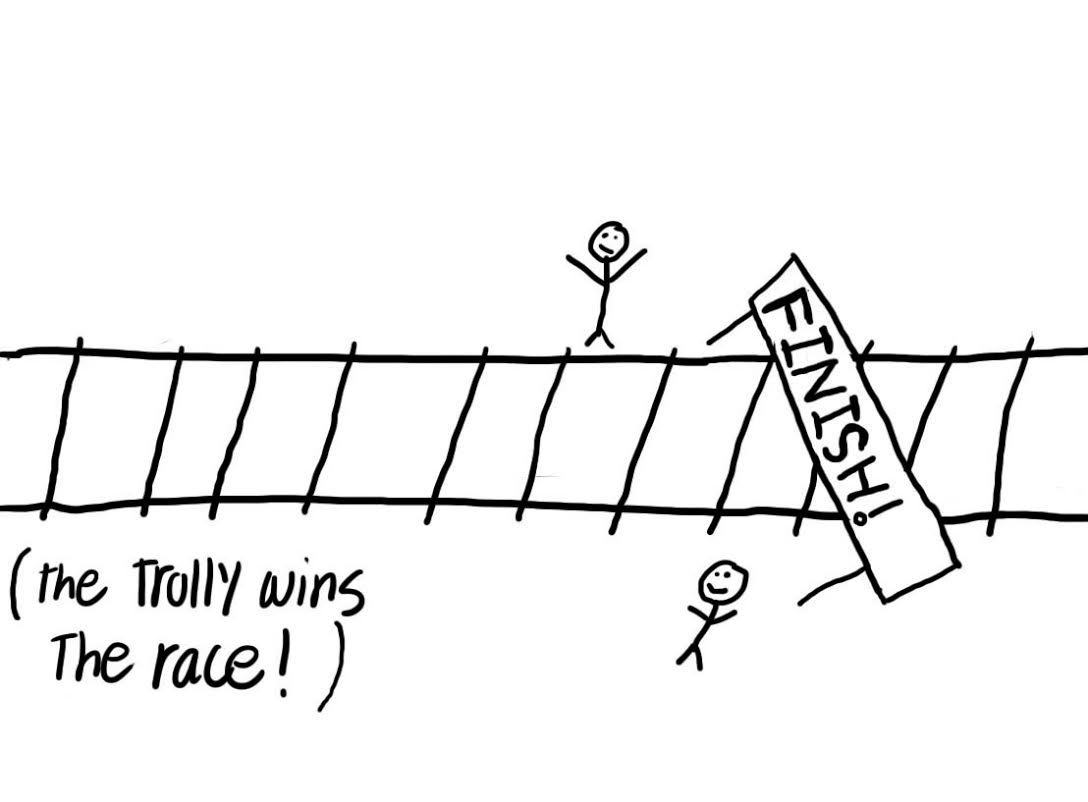 FINISH!
(the Trolly wins
The race!)